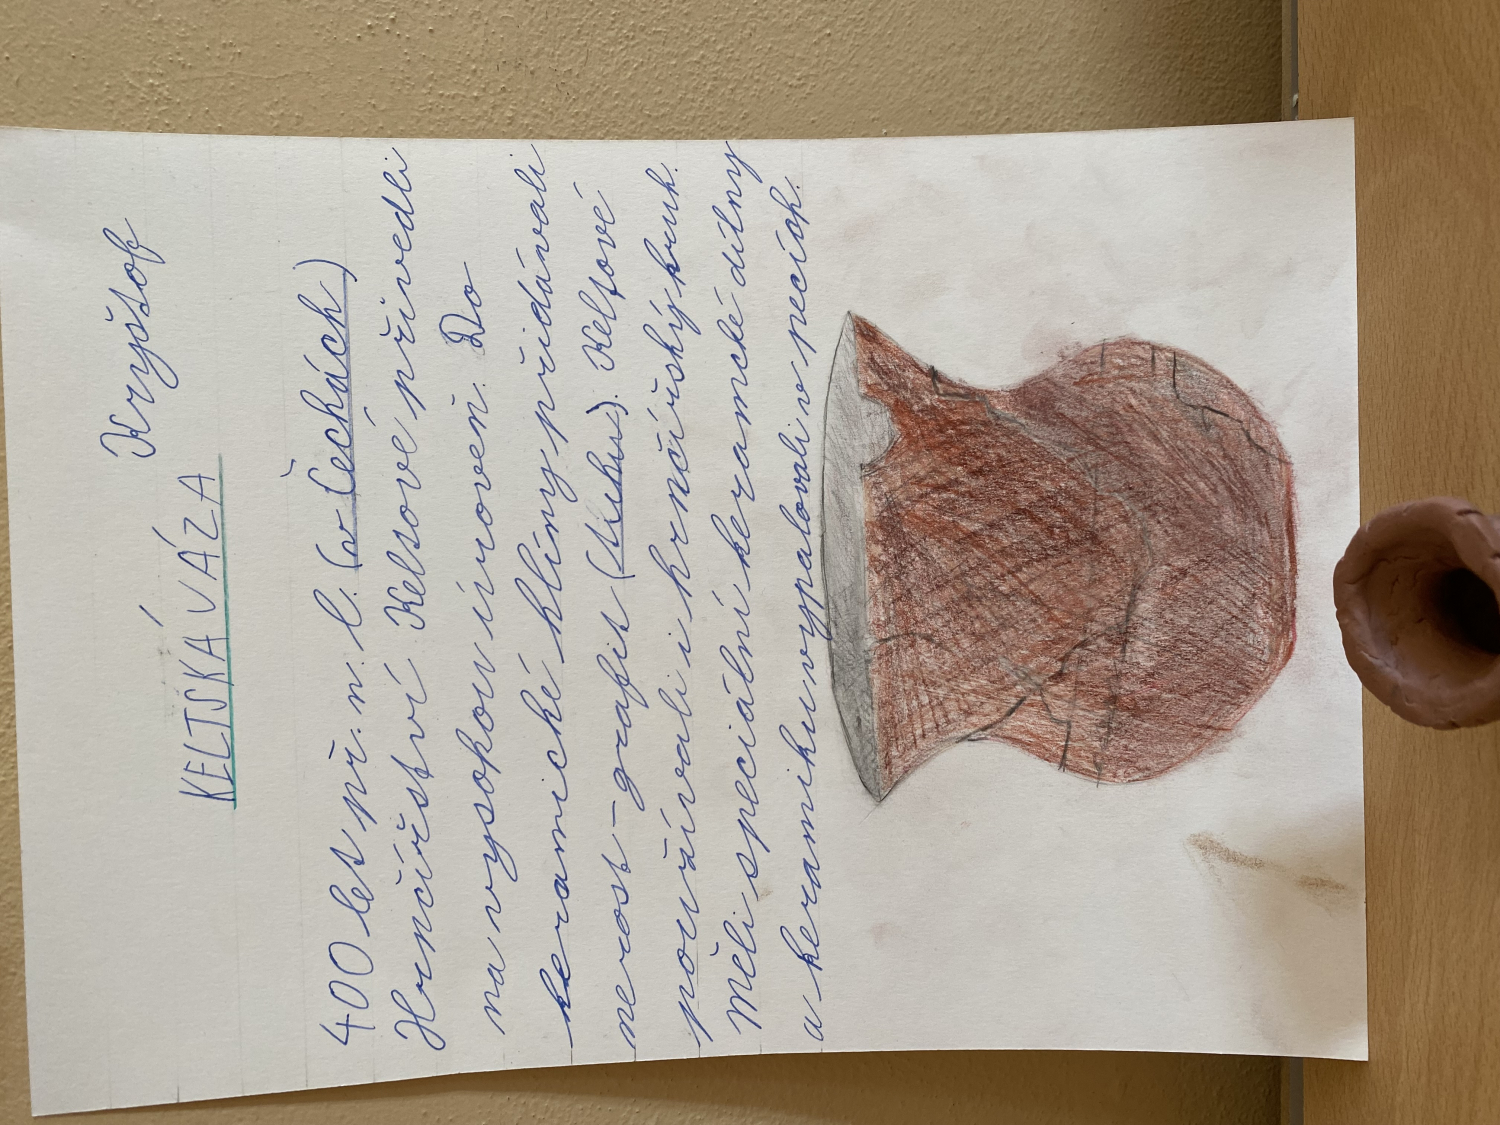 Kryštof
KELTSKÁ VÁZA
400 let př. n. l. (v Čechách)
Hrnčířství Keltové přivedli
na vysokou úroveň. Do
keramické hlíny přidávali
nerost - grafit (tuhu). Keltové
používali i hrnčířský kruh.
Měli speciální keramcké dílny
a keramiku vypalovali v pecích.